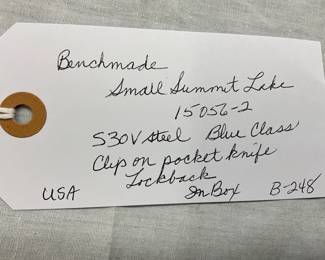 Benchmade
Small Summit Lake
15056-2
S30V steel Blue Class
Clip on pocket knife
Lockback
USA In Box B-248